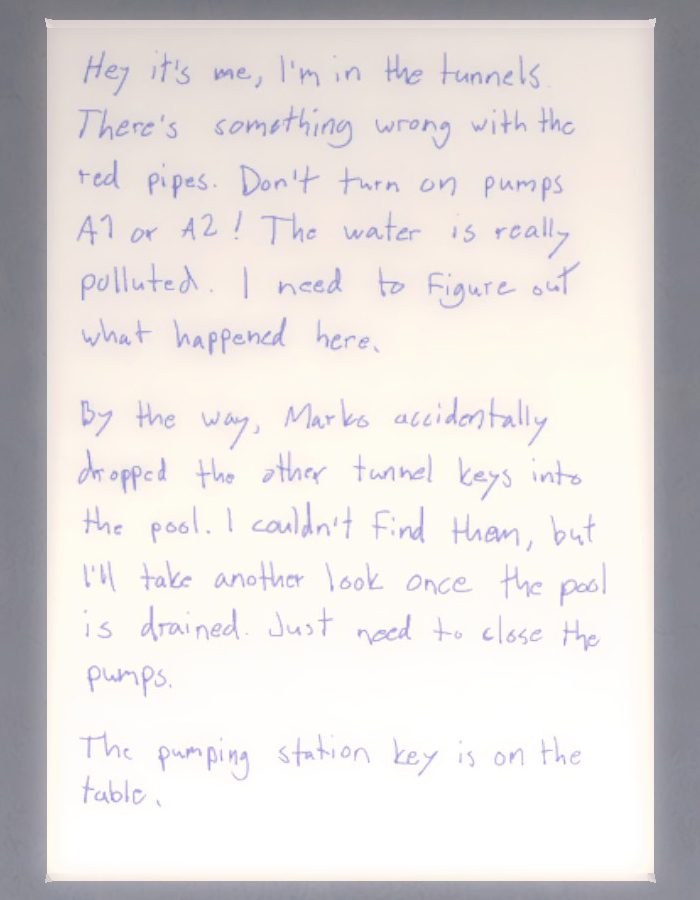 Hey it's me, I'm in the tunnels.
There's something wrong with the
red pipes. Don't turn on pumps
A1 or A2! The water is really
polluted. I need to Figure out
what happened here.
By the way, Marko accidentally
dropped the other tunnel keys into
the pool. I couldn't find them, but
I'll take another look once the pool
is drained. Just need to close the
pumps.
The pumping station key is on the
table.